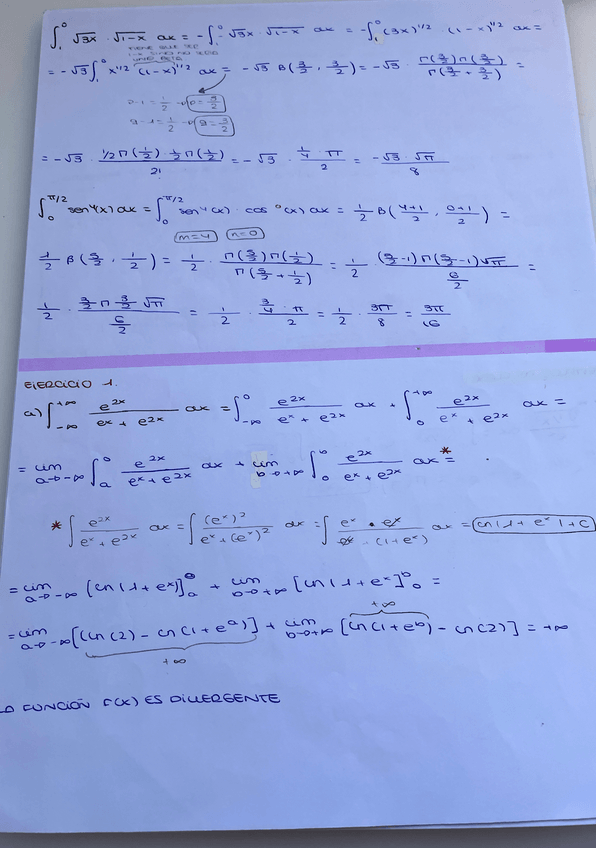 ∫₁⁰ √3x · √1-x dx = -∫₀¹ √3x · √1-x dx = -∫₀¹ (3x)^1/2 · (1-x)^1/2 dx =
TIENE QUE SER
= -√3 ∫₀¹ x^1/2 (1-x)^1/2 dx = -√3 β(3/2, 3/2) = -√3 · Γ(3/2)Γ(3/2) / Γ(3/2 + 3/2) =
p-1 = 1/2 → p = 3/2
q-1 = 1/2 → q = 3/2
= -√3 · 1/2 Γ(1/2) 1/2 Γ(1/2) / 2! = -√3 · 1/4 · π / 2 = -√3 · √π / 8
∫₀^π/2 sen⁴(x) dx = ∫₀^π/2 sen⁴(x) · cos⁰(x) dx = 1/2 β(4+1/2, 0+1/2) =
m=4 n=0
1/2 β(5/2, 1/2) = 1/2 · Γ(5/2)Γ(1/2) / Γ(5/2 + 1/2) = 1/2 · (5/2 -1)Γ(5/2 -1)√π / 6/2 =
1/2 · 3/2 Γ 3/2 √π / 6/2 = 1/2 · 3/4 · π / 2 = 1/2 · 3π/8 = 3π/16
EJERCICIO 1.
a) ∫₋∞^+∞ e^2x / e^x + e^2x dx = ∫₋∞^0 e^2x / e^x + e^2x dx + ∫₀^+∞ e^2x / e^x + e^2x dx =
= lim a→-∞ ∫ₐ⁰ e^2x / e^x + e^2x dx + lim b→+∞ ∫₀^b e^2x / e^x + e^2x dx *=
* ∫ e^2x / e^x + e^2x dx = ∫ (e^x)² / e^x + (e^x)² dx = ∫ e^x · e^x / e^x · (1+e^x) dx = ln|1+e^x|+C
= lim a→-∞ [ln|1+e^x]ₐ⁰ + lim b→+∞ [ln|1+e^x]₀^b =
+∞
= lim a→-∞ [(ln(2) - ln(1+e^a)] + lim b→+∞ [ln(1+e^b) - ln(2)] = +∞
+∞
LA FUNCIÓN F(X) ES DIVERGENTE